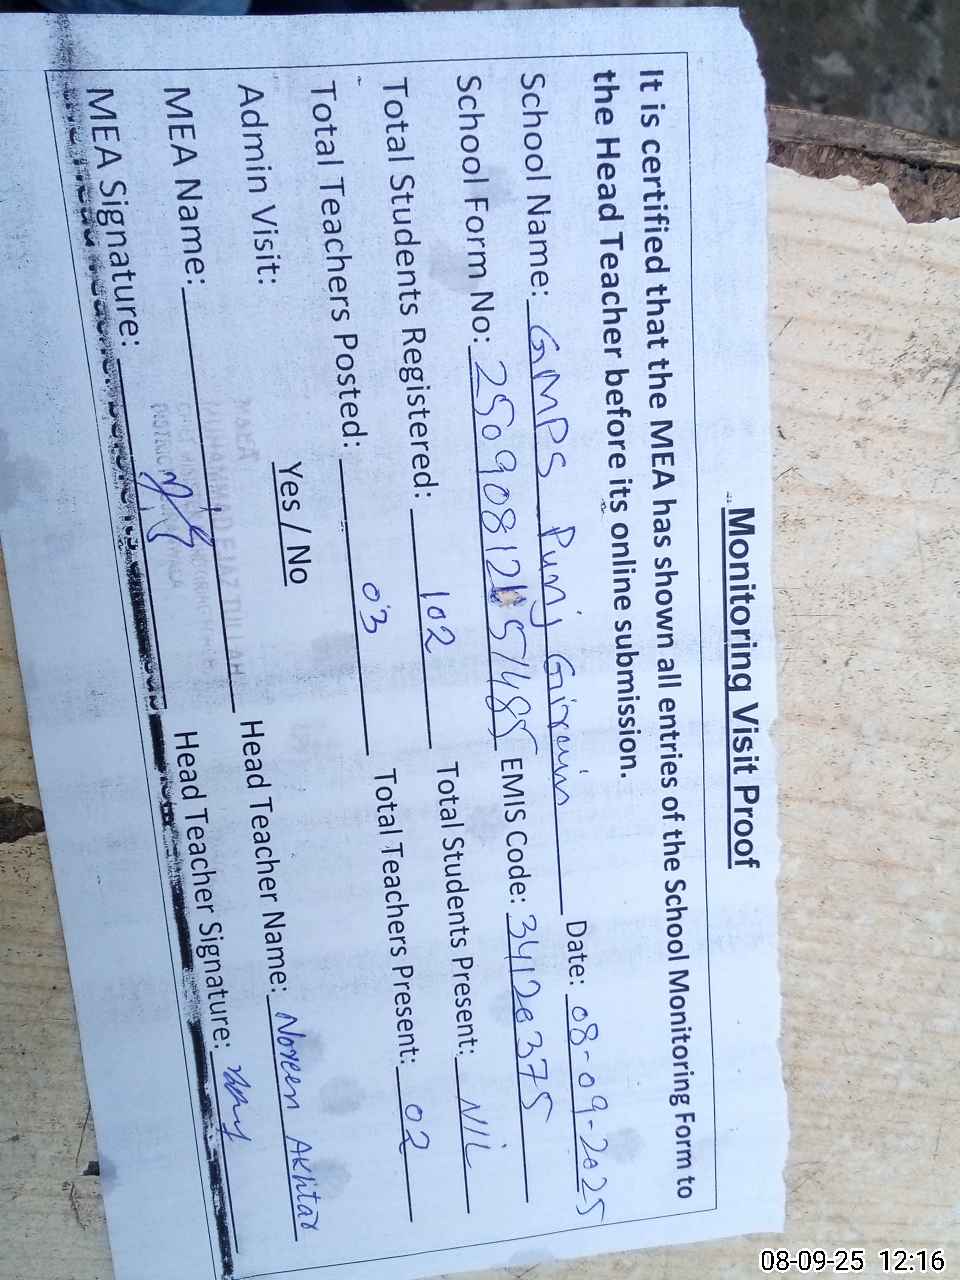 Monitoring Visit Proof
It is certified that the MEA has shown all entries of the School Monitoring Form to
the Head Teacher before its online submission.
School Name: GMPS Punj Girain Date: 08-09-2025
School Form No: 25090812 57485 EMIS Code: 34120375
Total Students Registered: 102 Total Students Present: NIL
Total Teachers Posted: 03 Total Teachers Present: 02
Admin Visit: Yes / No
MEA Name: Head Teacher Name: Noreen Akhtar
MEA Signature: Head Teacher Signature:
08-09-25 12:16